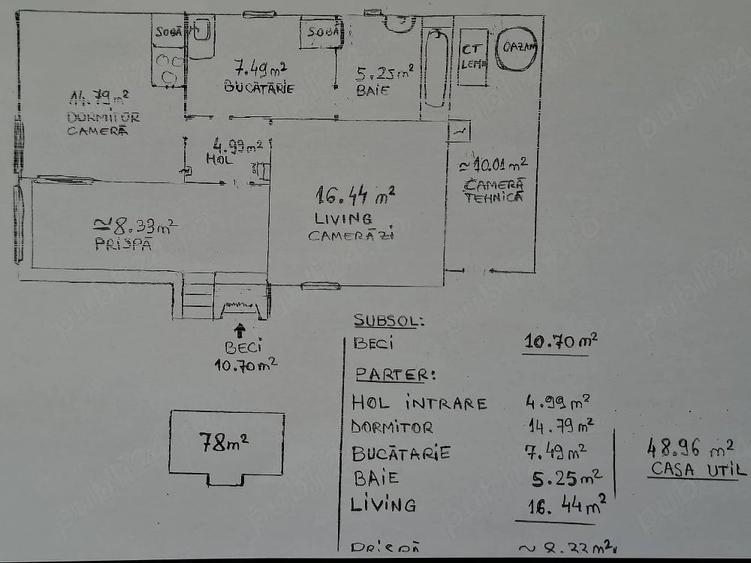 SOBĂ
SOBĂ
7.49 m²
BUCĂTĂRIE
5.25 m²
BAIE
CT
LEMN
14.79 m²
DORMITOR
CAMERĂ
4.99 m²
HOL
≃ 10.01 m²
CAMERĂ
TEHNICĂ
16.44 m²
LIVING
CAMERĂ ZI
≃8.33 m²
PRISPĂ
BECI
10.70 m²
78 m²
SUBSOL:
BECI 10.70 m²
PARTER:
HOL INTRARE 4.99 m²
DORMITOR 14.79 m²
BUCĂTARIE 7.49 m²
BAIE 5.25 m²
LIVING 16.44 m²
48.96 m²
CASA UTIL